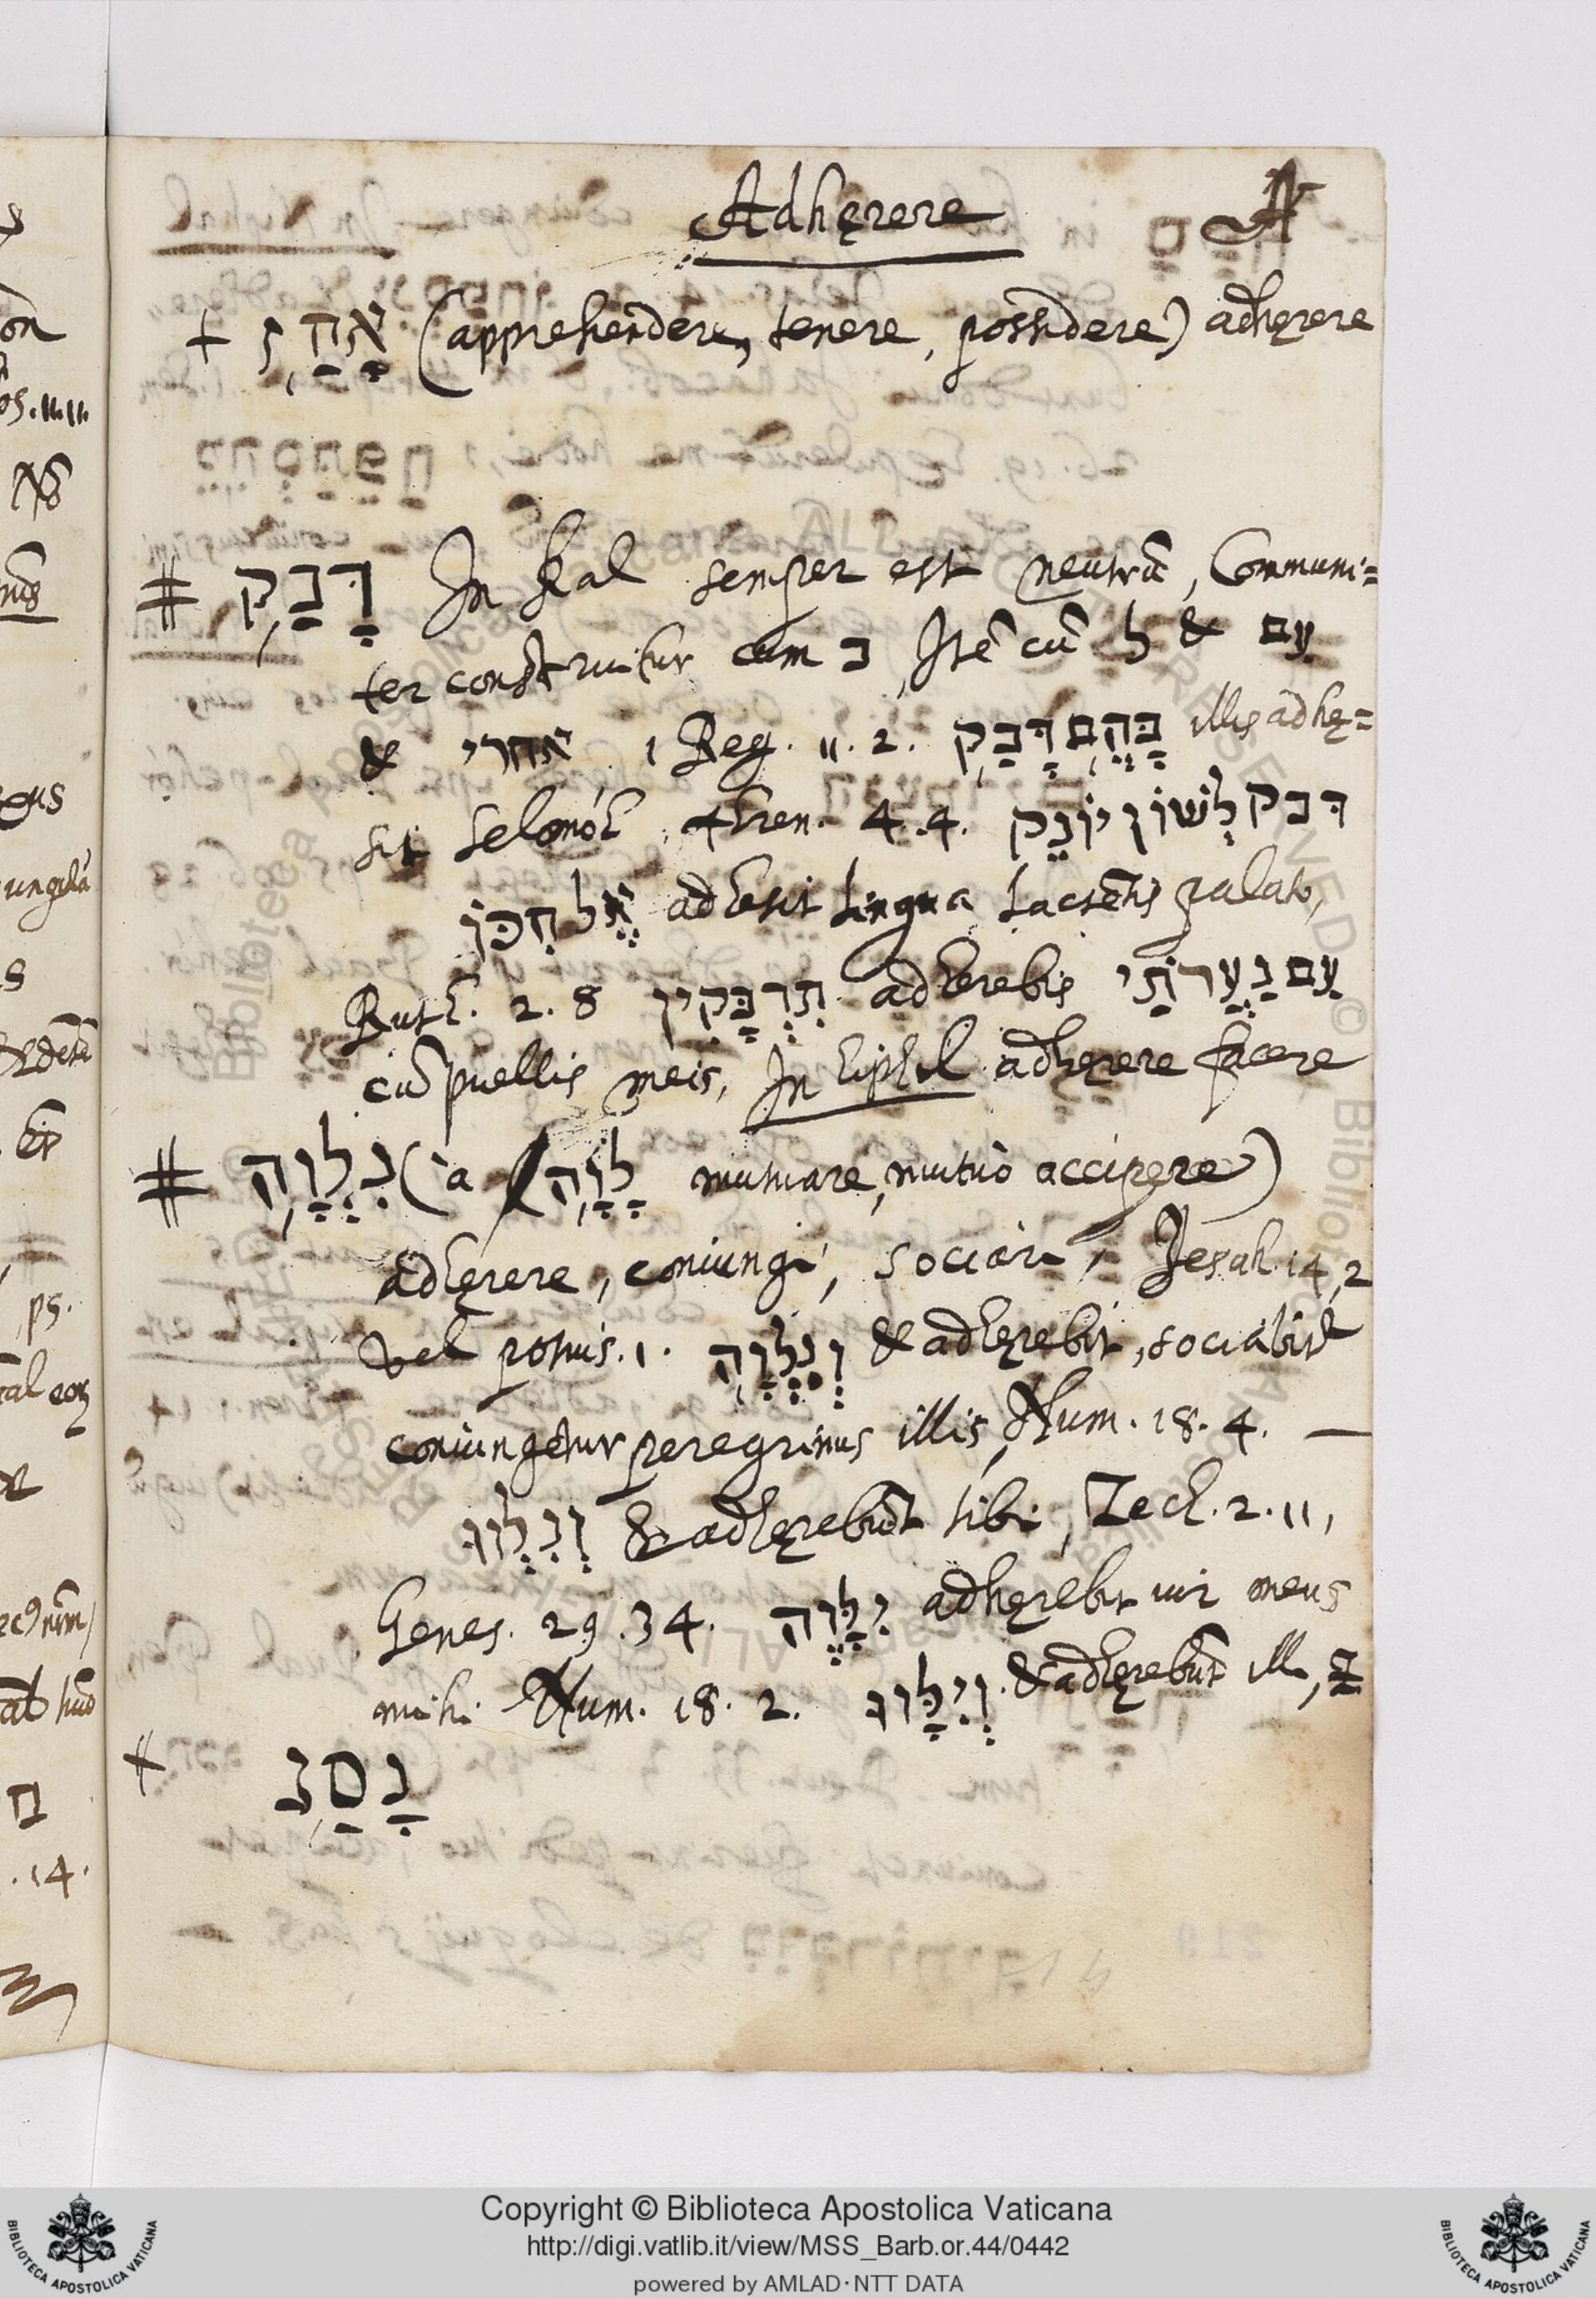 Adhęrere A
+ אָחַז (apprehendere, tenere, possidere) adhęrere
# דָּבַק In Kal semper est neutrũ, Communi=
ter construitur cum ב, Itẽ cũ ל & עִם
& אחרי 1 Reg. 11. 2. בָּהֶם דָּבַק illis adhę=
sit Selomóh, thren. 4. 4. דבק לְשׁוֹן יוֹנֵק
אֶל חִכּוֹ adhesit lingua lactẽtis palato,
Ruth. 2. 8 תִדְבָּקִין adherebis עִם נַעֲרוֹתַי
cũ puellis meis, In hiphil adhęrere facere
# נִלְוָה (à לָוָה mutuare, mutuò accipere)
adhęrere, coniungi, sociari, Jesah. 14, 2
vel potius. 1. וְנִלְוָה & adhęrebit, sociabitr
coniungetur peregrinus illis, Num. 18. 4. —
וְנִלְווּ & adhęrebũt tibi, Zech. 2. 11,
Genes. 29. 34. יִלָּוֶה adhęrebit uir meus
mihi Num. 18. 2. וְיִלָּווּ & adhęrebũt
+ נָסַב
Copyright © Biblioteca Apostolica Vaticana
http://digi.vatlib.it/view/MSS_Barb.or.44/0442
powered by AMLAD·NTT DATA
BIBLIOTECA APOSTOLICA VATICANA
BIBLIOTECA APOSTOLICA VATICANA